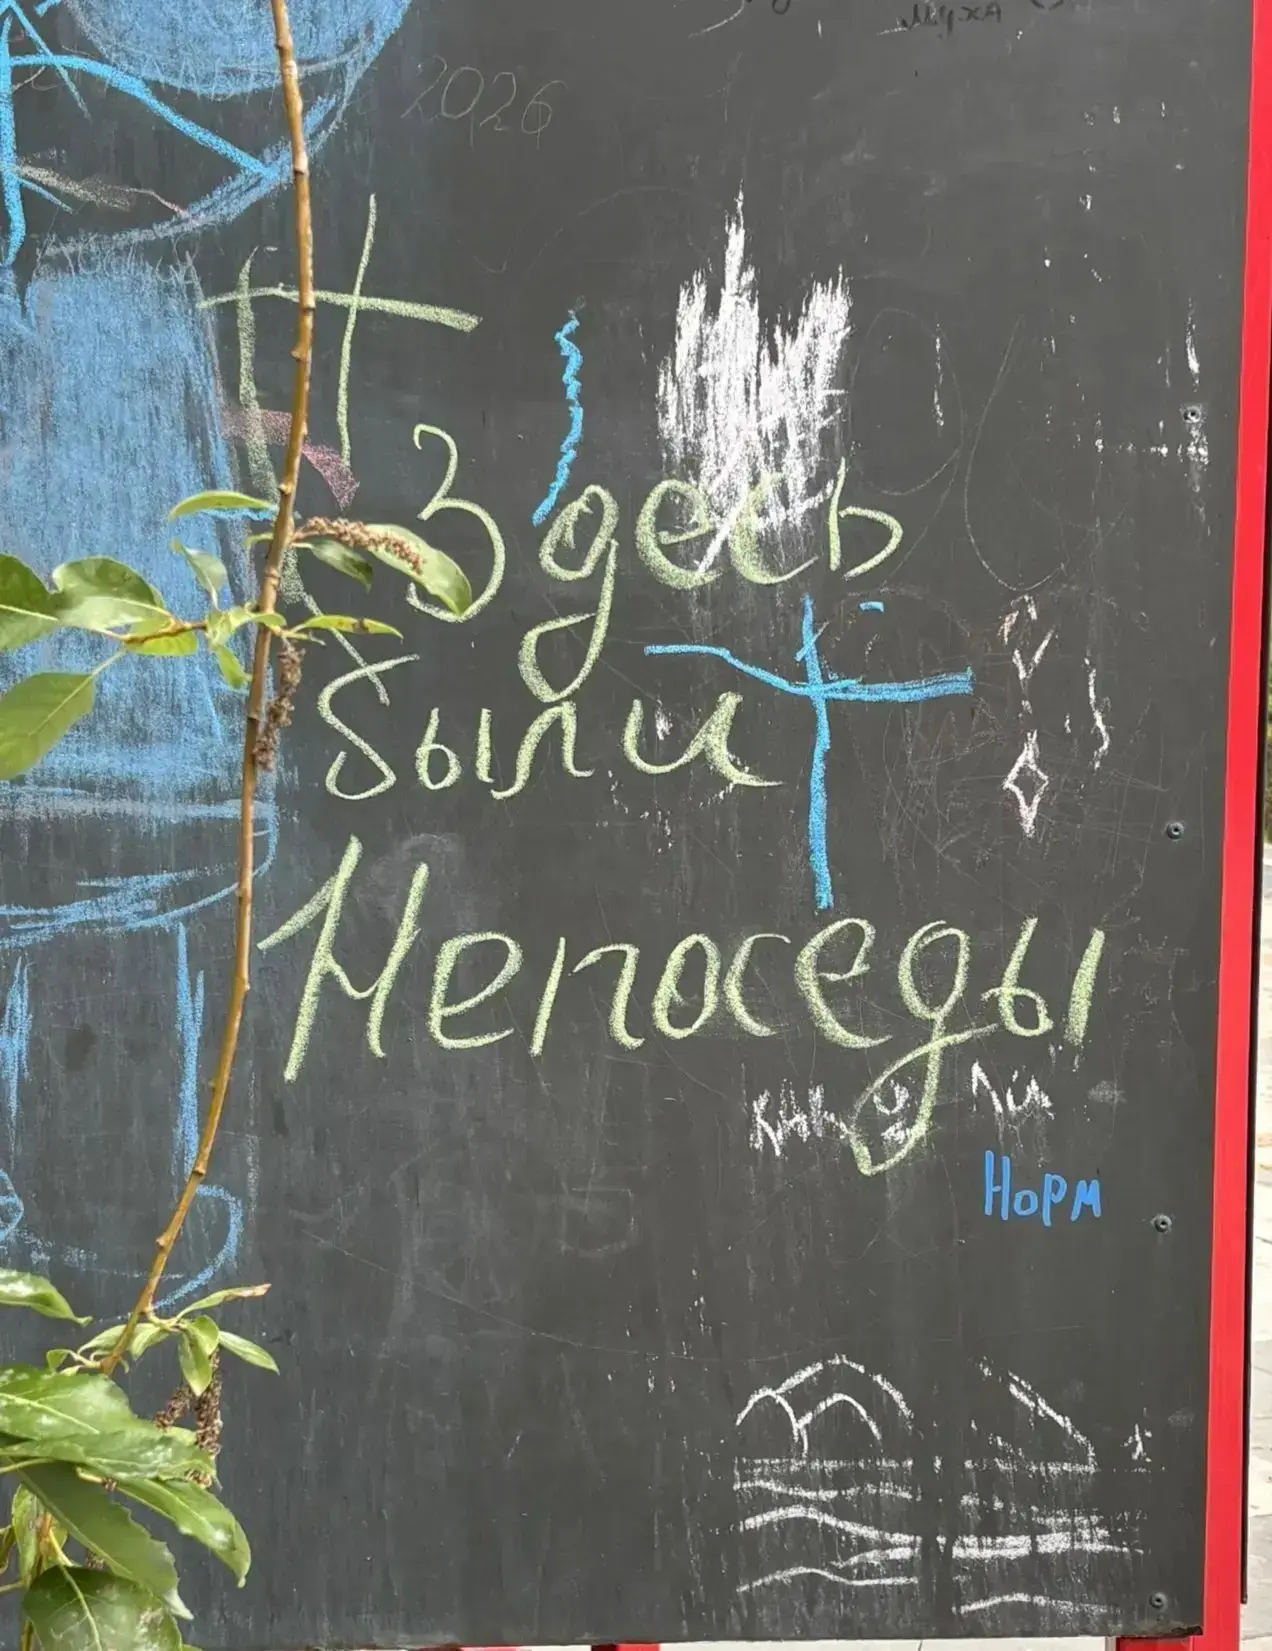 муха
2026
Здесь
были
Непоседы
Норм